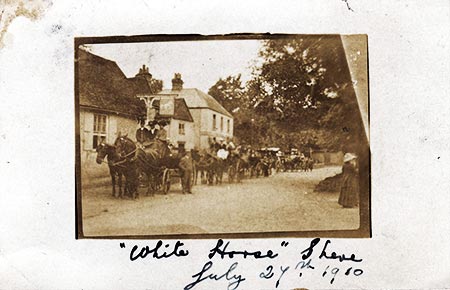 "White Horse" Shere
July 27th 1910